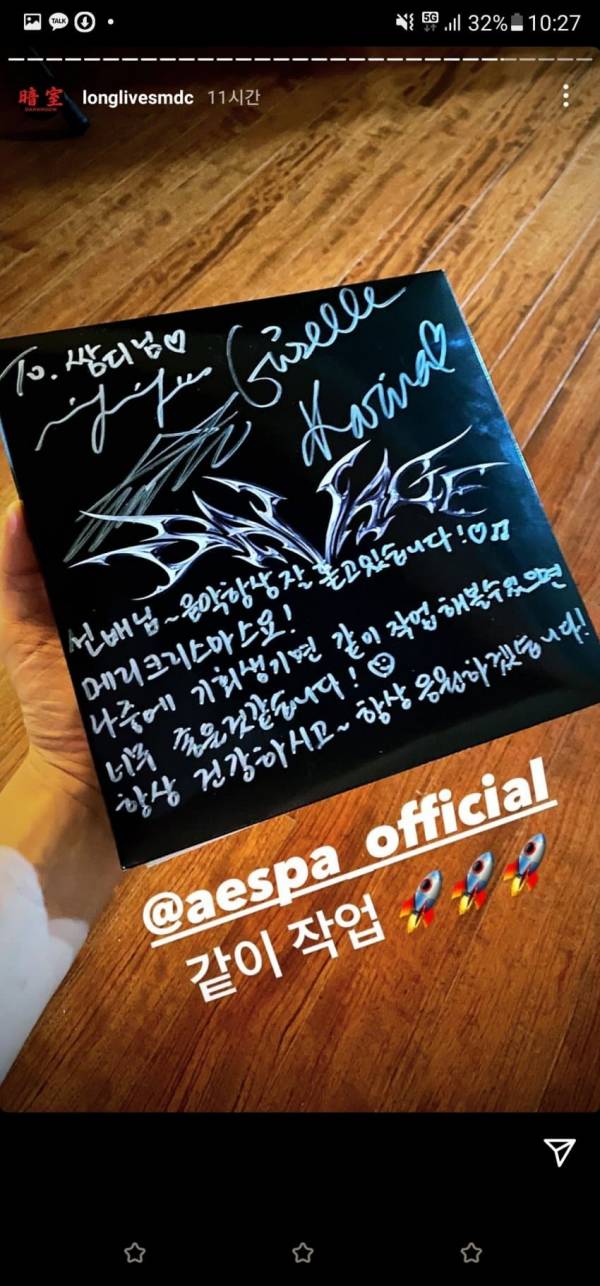 TALK
5G
32%
10:27
暗室
DARKROOM
longlivesmdc 11시간
To. 쌈디님♡
Giselle
Karina♡
SAVAGE
선배님~ 음악항상잘 듣고있습니다!♡♫
메리크리스마스요!
나중에 기회생기면 같이 작업 해볼수있으면
너무 좋을것같습니다!☺
항상 건강하시고~ 항상 응원하겠습니다!
@aespa_official
같이 작업 🚀🚀🚀